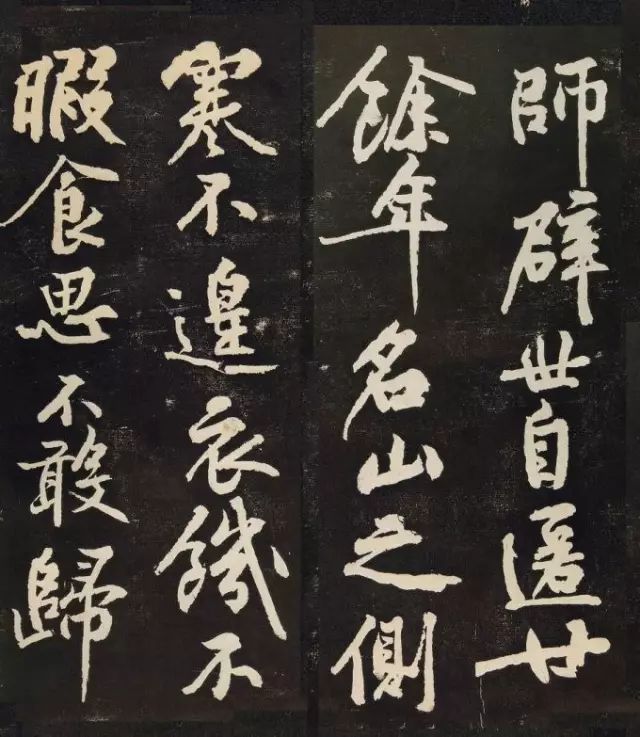 師辟世自遯廿
餘年名山之側
寒不遑衣饑不
暇食思不敢歸